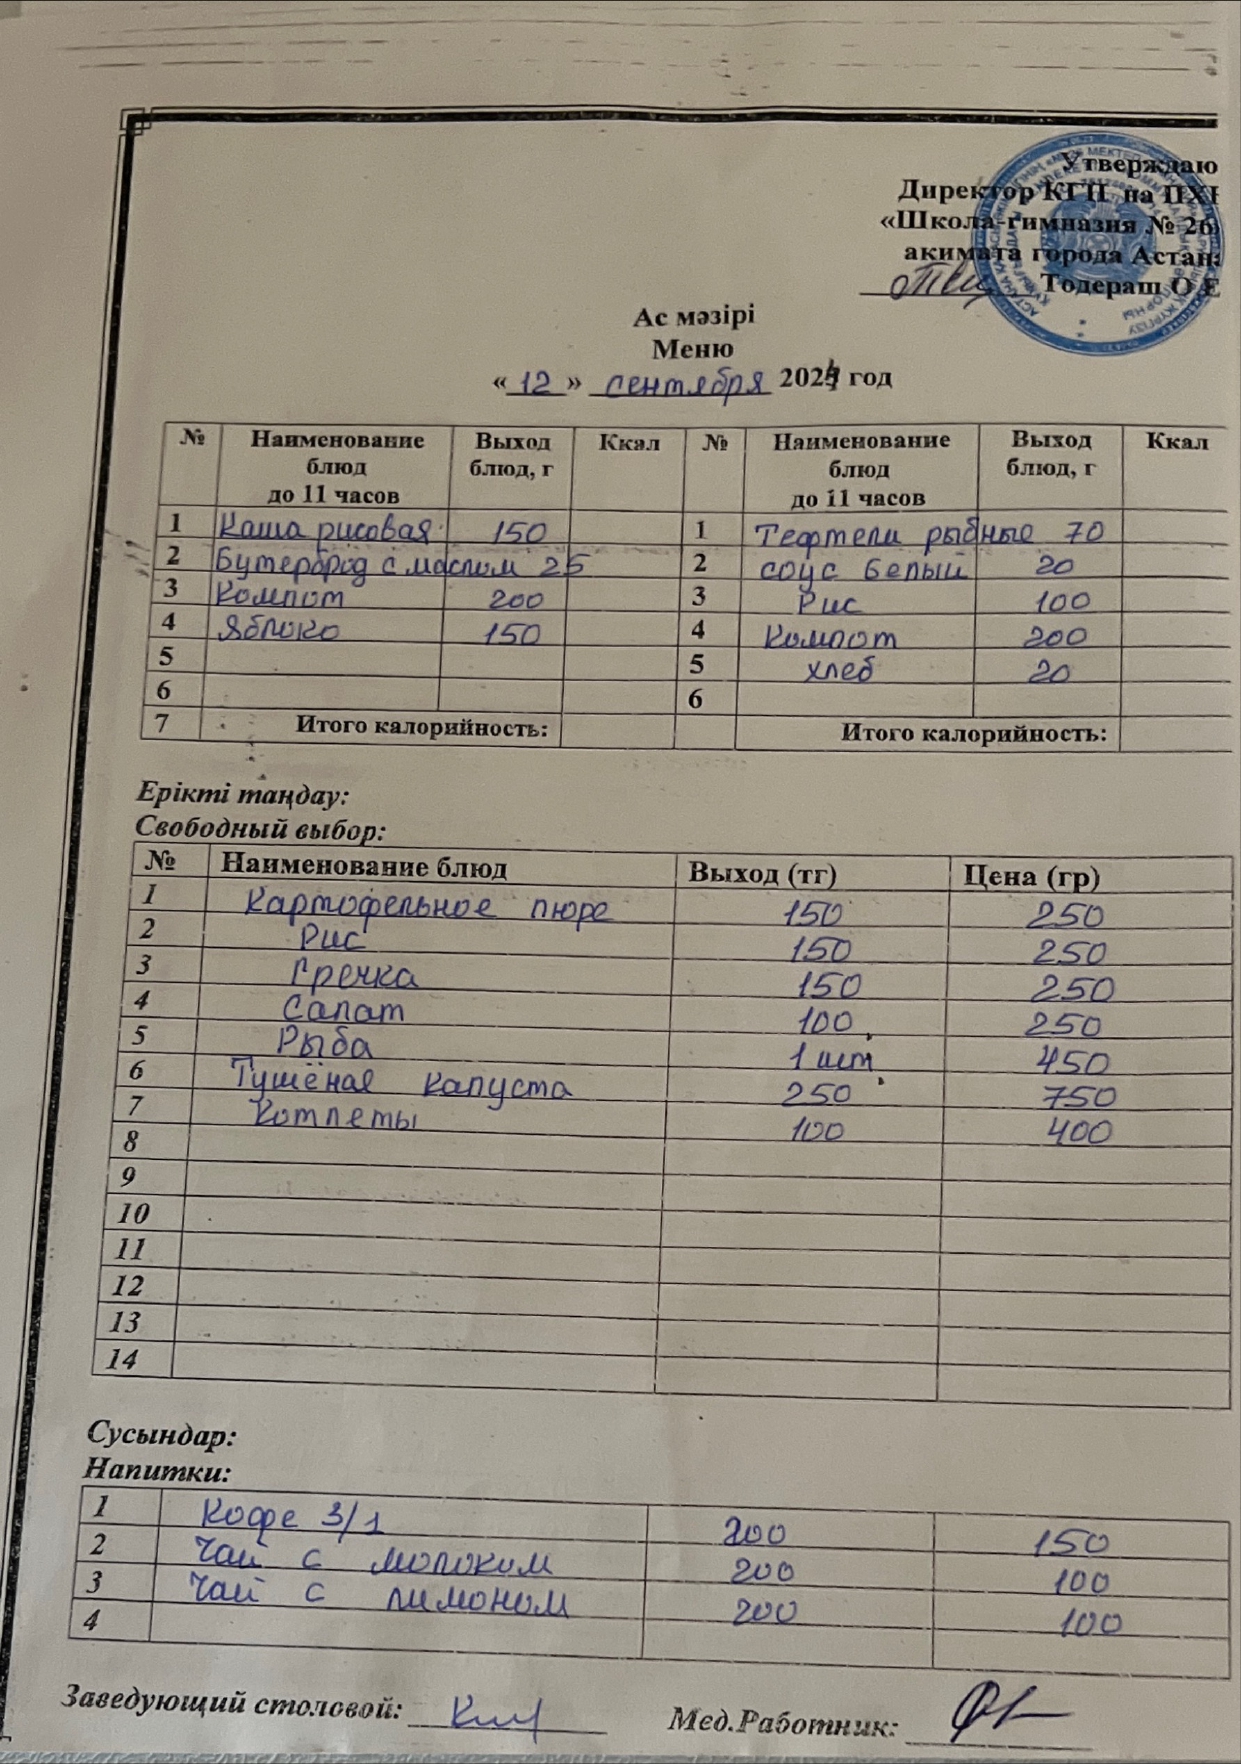 Утверждаю
Директор КГП на ПХ
«Школа-гимназия № 26
акимата города Астан
Тодераш О Е
Ас мәзірі
Меню
«12» сентября 2024 год
№ Наименование блюд до 11 часов Выход блюд, г Ккал № Наименование блюд до 11 часов Выход блюд, г Ккал
1 Каша рисовая 150 1 Тефтели рыбные 70
2 Бутерброд с маслом 25 2 соус белый 20
3 Компот 200 3 Рис 100
4 Яблоко 150 4 Компот 200
5 5 хлеб 20
6 6
7 Итого калорийность: Итого калорийность:
Ерікті таңдау:
Свободный выбор:
№ Наименование блюд Выход (тг) Цена (гр)
1 Картофельное пюре 150 250
2 Рис 150 250
3 Гречка 150 250
4 Салат 100 250
5 Рыба 1 шт 450
6 Тушёная капуста 250 750
7 Котлеты 100 400
8
9
10
11
12
13
14
Сусындар:
Напитки:
1 Кофе 3/1 200 150
2 Чай с молоком 200 100
3 Чай с лимоном 200 100
4
Заведующий столовой:
Мед.Работник: